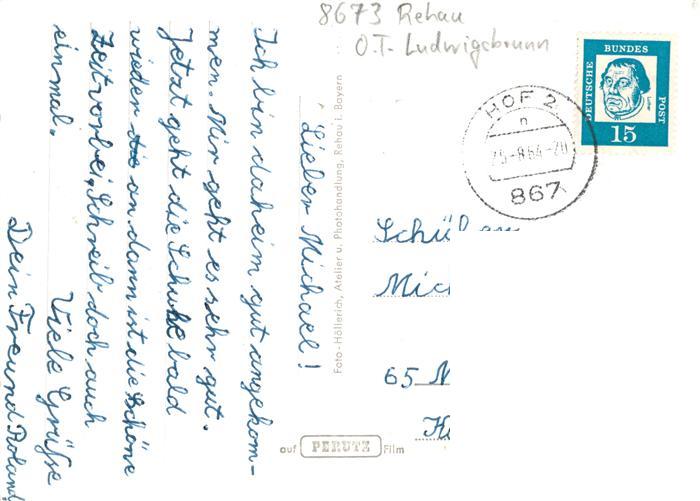 8673 Rehau
O.T. Ludwigsbrunn
DEUTSCHE
BUNDES
POST
15
HOF 2
n
25-8.64-20
867
Lieber Michael!
Ich bin daheim gut angekom-
men. Mir geht es sehr gut.
Jetzt geht die Schule bald
wieder an dann ist die schöne
Zeit vorbei, Schreib doch auch
einmal.
Viele Grüße
Dein Freund Roland
Foto-Höllerich, Atelier u. Photohandlung, Rehau i. Bayern
auf PERUTZ Film
Schü
Mic
65 M